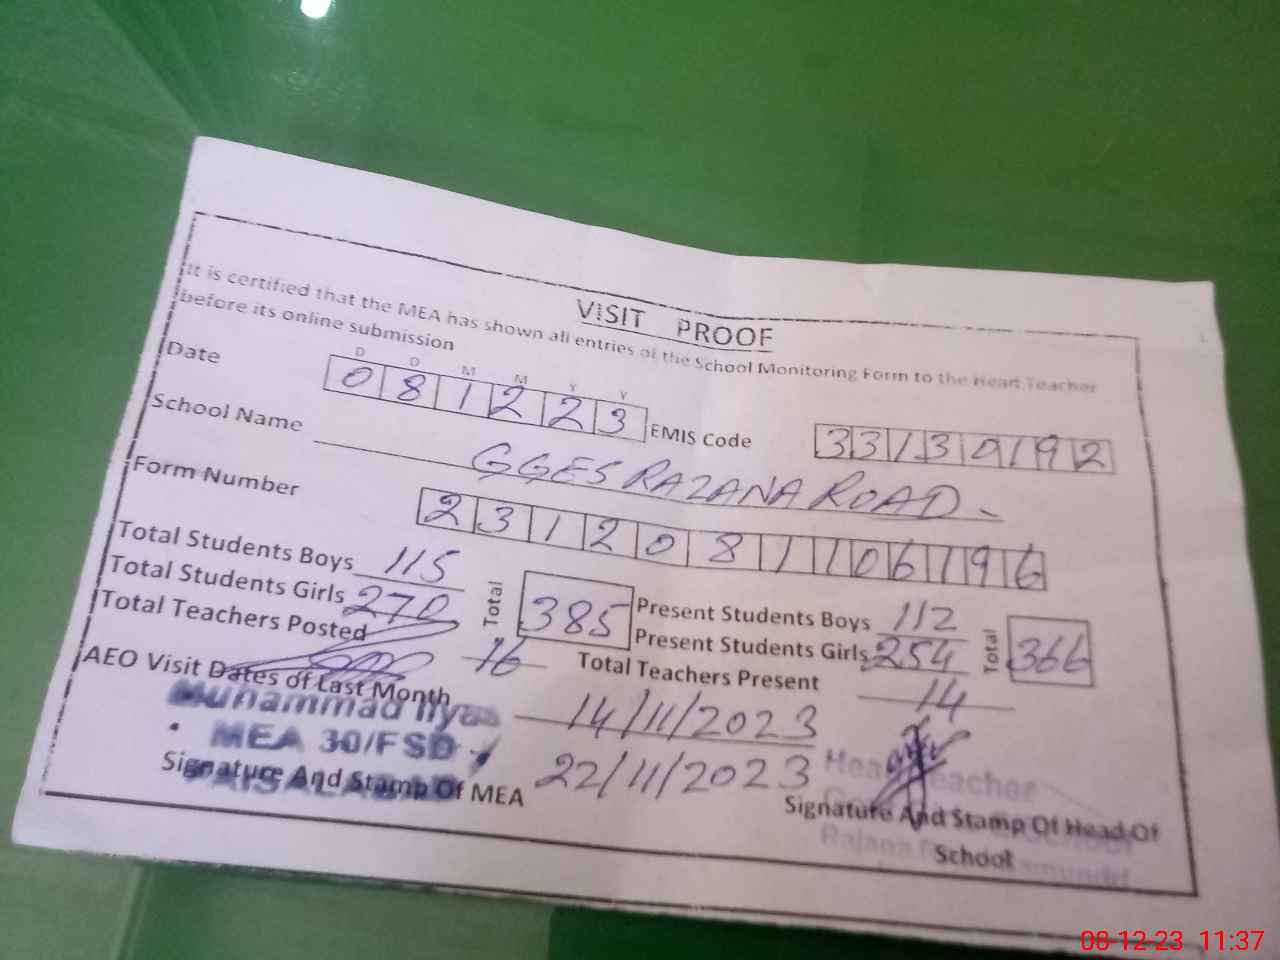 VISIT PROOF
It is certified that the MEA has shown all entries of the School Monitoring Form to the Head Teacher
before its online submission
D D M M Y Y
Date 081223 EMIS Code 33130192
School Name GGES RAZANA ROAD -
Form Number 2312081106196
Total Students Boys 115 Total 385 Present Students Boys 112 Total 366
Total Students Girls 270 Present Students Girls 254
Total Teachers Posted 16 Total Teachers Present 14
AEO Visit Dates of Last Month 14/11/2023
22/11/2023
Muhammad Ilyas
MEA 30/FSD
FAISALABAD
Signature And Stamp Of MEA
Head Teacher
Signature And Stamp Of Head Of
School
Rajana
08-12-23 11:37